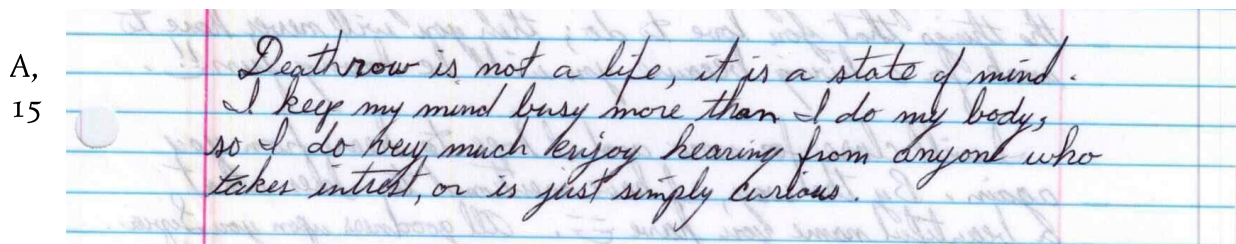 A,
15
Deathrow is not a life, it is a state of mind.
I keep my mind busy more than I do my body,
so I do very much enjoy hearing from anyone who
takes intrest, or is just simply curious.